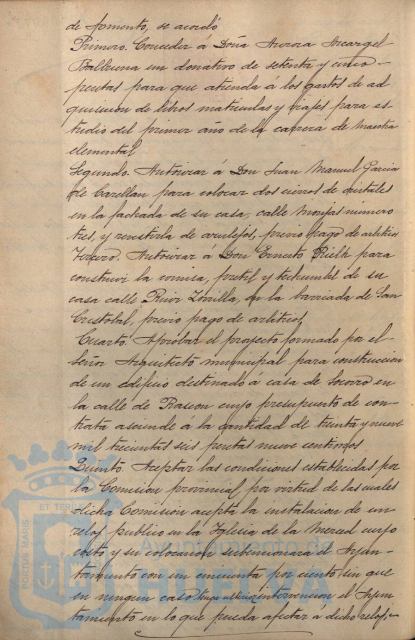 de fomento, se acordó
Primero. Conceder á Doña Aurora Arcangel
Balbuena un donativo de setenta y cinco
pesetas para que atienda á los gastos de ad
quisicion de libros matriculas y viajes para es
tudio del primer año de la carrera de Maestra
elemental
Segundo. Autorizar á Don Juan Manuel Garcia
de Castellan para colocar dos cierros de cristales
en la fachada de su casa, calle Monjas numero
tres, y revestirla de azulejos, previo pago de arbitrios
Tercero. Autorizar á Don Ernesto para
construir la cornisa, pretil y techumbre de su
casa calle Ruiz Zorrilla, en la barriada de San
Cristobal, previo pago de arbitrios
Cuarto. Aprobar el proyecto formado por el
Señor Arquitecto municipal para construccion
de un edificio destinado á casa de Socorro en
la calle de Rascon cuyo presupuesto de con
trata asciende á la cantidad de treinta y nueve
mil trecientas seis pesetas nueve centimos
Quinto. Aceptar las condiciones establecidas por
la Comision provincial, por virtud de las cuales
dicha Comision acepta la instalacion de un
reloj publico en la Iglesia de la Merced cuyo
costo y su colocacion subvencionará el Ayun-
tamiento con un cincuenta por ciento, sin que
en ningun caso intervencion el Ayun
tamiento en lo que pueda afectar á dicho reloj,
PORTUS MARIS
ET TERRÆ
Ayuntamiento de
HUELVA